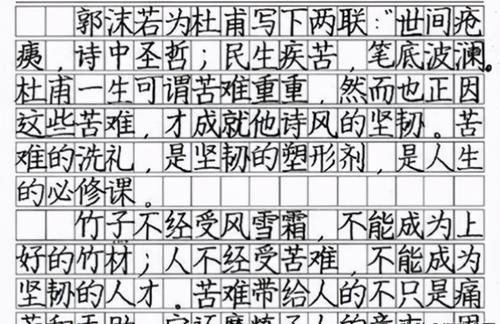 郭沫若为杜甫写下两联:“世间疮
痍，诗中圣哲；民生疾苦，笔底波澜。
杜甫一生可谓苦难重重，然而也正因
这些苦难，才成就他诗风的坚韧。苦
难的洗礼，是坚韧的塑形剂，是人生
的必修课。
竹子不经受风雪霜，不能成为上
好的竹材；人不经受苦难，不能成为
坚韧的人才。苦难带给人的不只是痛